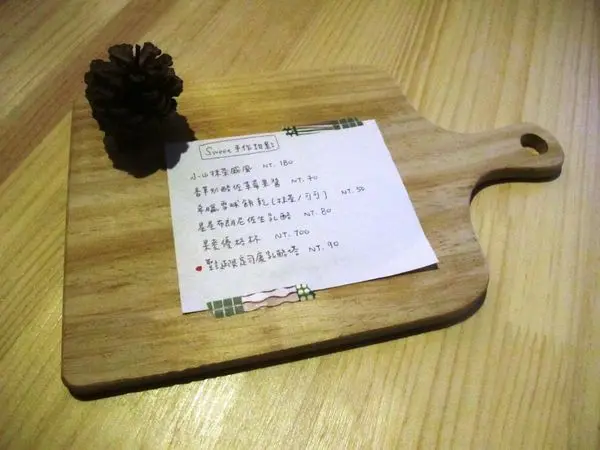 Sweet 手作甜點
小山抹茶戚風 NT. 180
香草奶酪佐草莓果醬 NT. 70
希臘雪球餅乾(抹茶/可可) NT. 50
星星布朗尼佐生乳酪 NT. 80
果麥優格杯 NT. 100
聖誕限定可愛乳酪塔 NT. 90